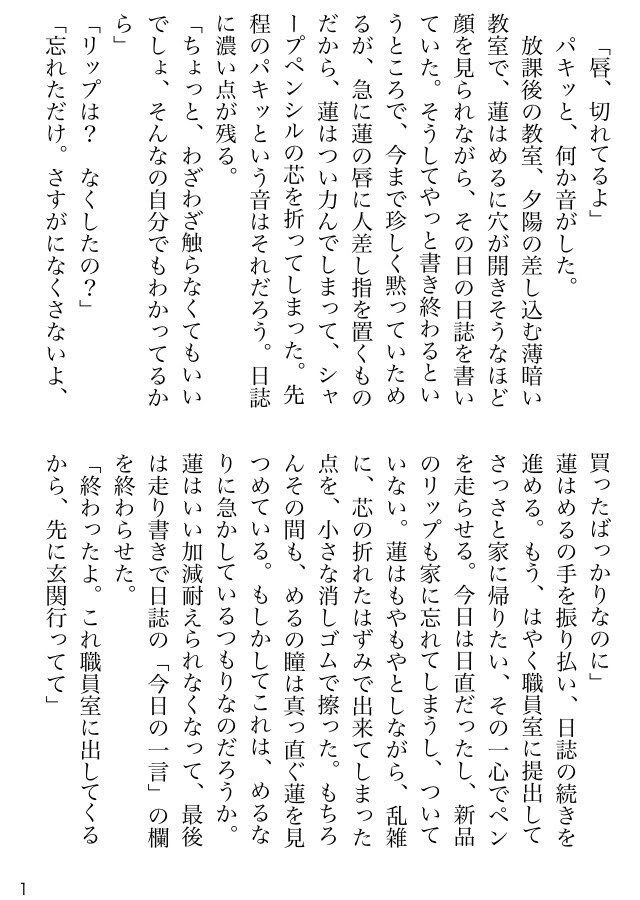 「唇、切れてるよ」
パキッと、何か音がした。
放課後の教室、夕陽の差し込む薄暗い
教室で、蓮はめるに穴が開きそうなほど
顔を見られながら、その日の日誌を書い
ていた。そうしてやっと書き終わるとい
うところで、今まで珍しく黙っていため
るが、急に蓮の唇に人差し指を置くもの
だから、蓮はつい力んでしまって、シャ
ープペンシルの芯を折ってしまった。先
程のパキッという音はそれだろう。日誌
に濃い点が残る。
「ちょっと、わざわざ触らなくてもいい
でしょ、そんなの自分でもわかってるか
ら」
「リップは？　なくしたの？」
「忘れただけ。さすがになくさないよ、
買ったばっかりなのに」
蓮はめるの手を振り払い、日誌の続きを
進める。もう、はやく職員室に提出して
さっさと家に帰りたい、その一心でペン
を走らせる。今日は日直だったし、新品
のリップも家に忘れてしまうし、ついて
いない。蓮はもやもやとしながら、乱雑
に、芯の折れたはずみで出来てしまった
点を、小さな消しゴムで擦った。もちろ
んその間も、めるの瞳は真っ直ぐ蓮を見
つめている。もしかしてこれは、めるな
りに急かしているつもりなのだろうか。
蓮はいい加減耐えられなくなって、最後
は走り書きで日誌の「今日の一言」の欄
を終わらせた。
「終わったよ。これ職員室に出してくる
から、先に玄関行ってて」
1